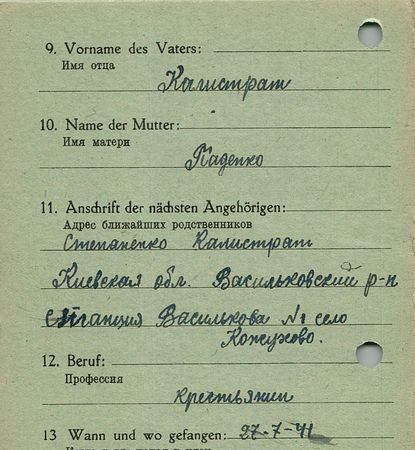 9. Vorname des Vaters:
Имя отца
Калистрат
10. Name der Mutter:
Имя матери
Паденко
11. Anschrift der nächsten Angehörigen:
Адрес ближайших родственников
Степаненко Калистрат
Киевская обл. Васильковский р-н
станция Василькова №1 село
Кожухово.
12. Beruf:
Профессия
крестьянин
13 Wann und wo gefangen: 27-7-41